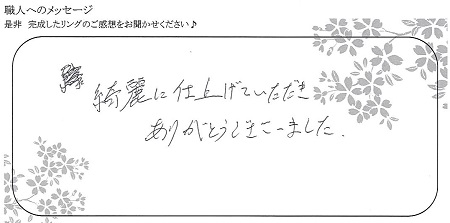 職人へのメッセージ
是非 完成したリングのご感想をお聞かせください♪
綺麗に仕上げていただき
ありがとうございました.